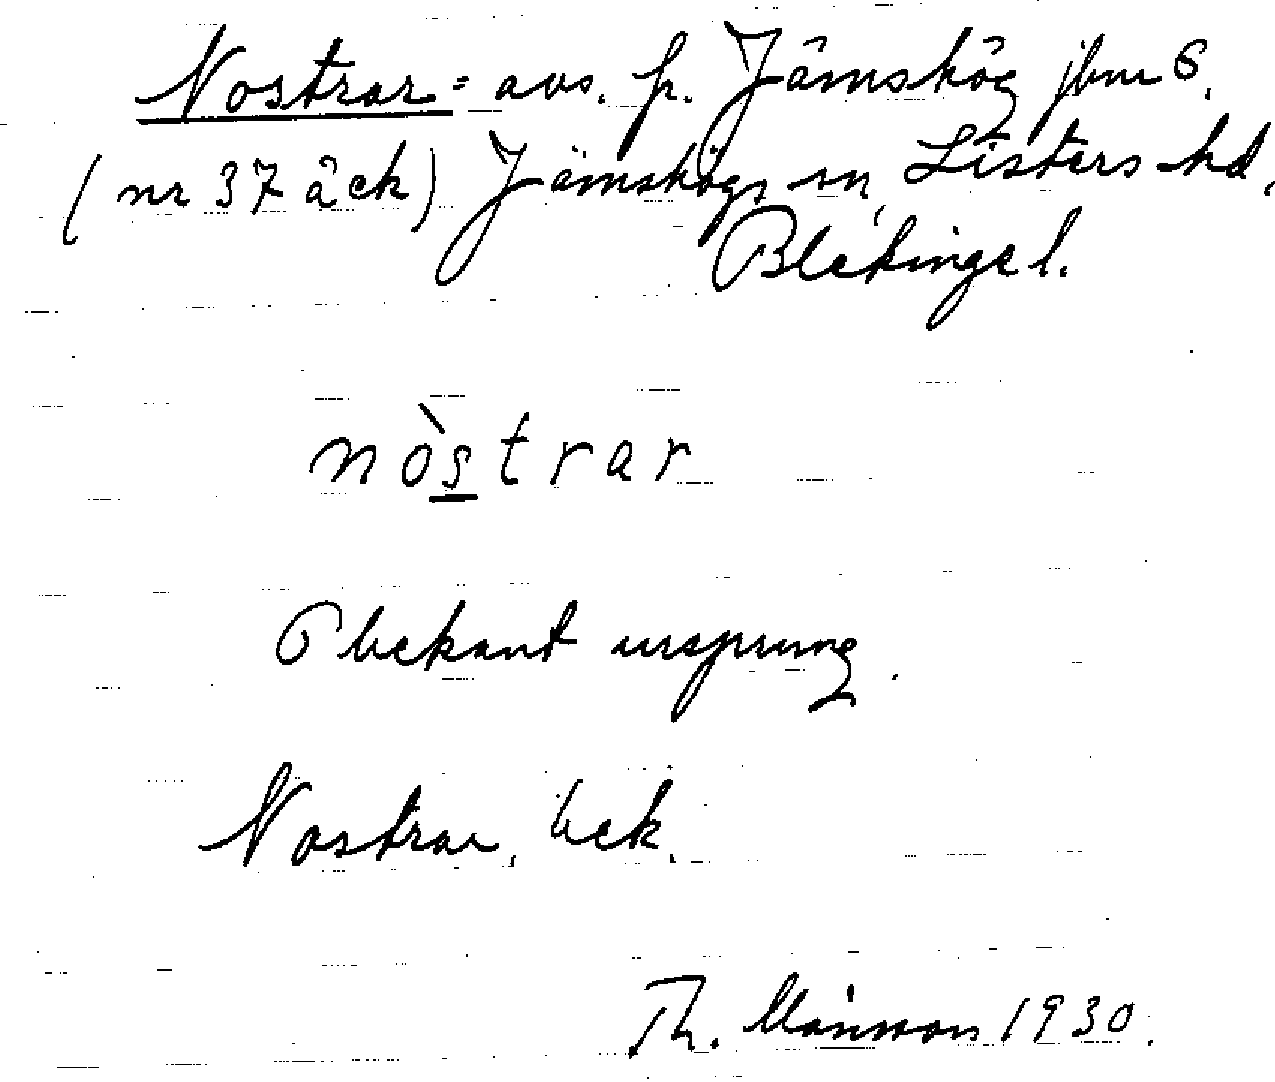 Nostrar = avs. fr. Jämshög jbnr 6.
(nr 37 äck) Jämshögs sn, Listers hd,
Blekinge l.
nòstrar
Obekant ursprung.
Nostrar, bek.
Th. Månsson 1930.